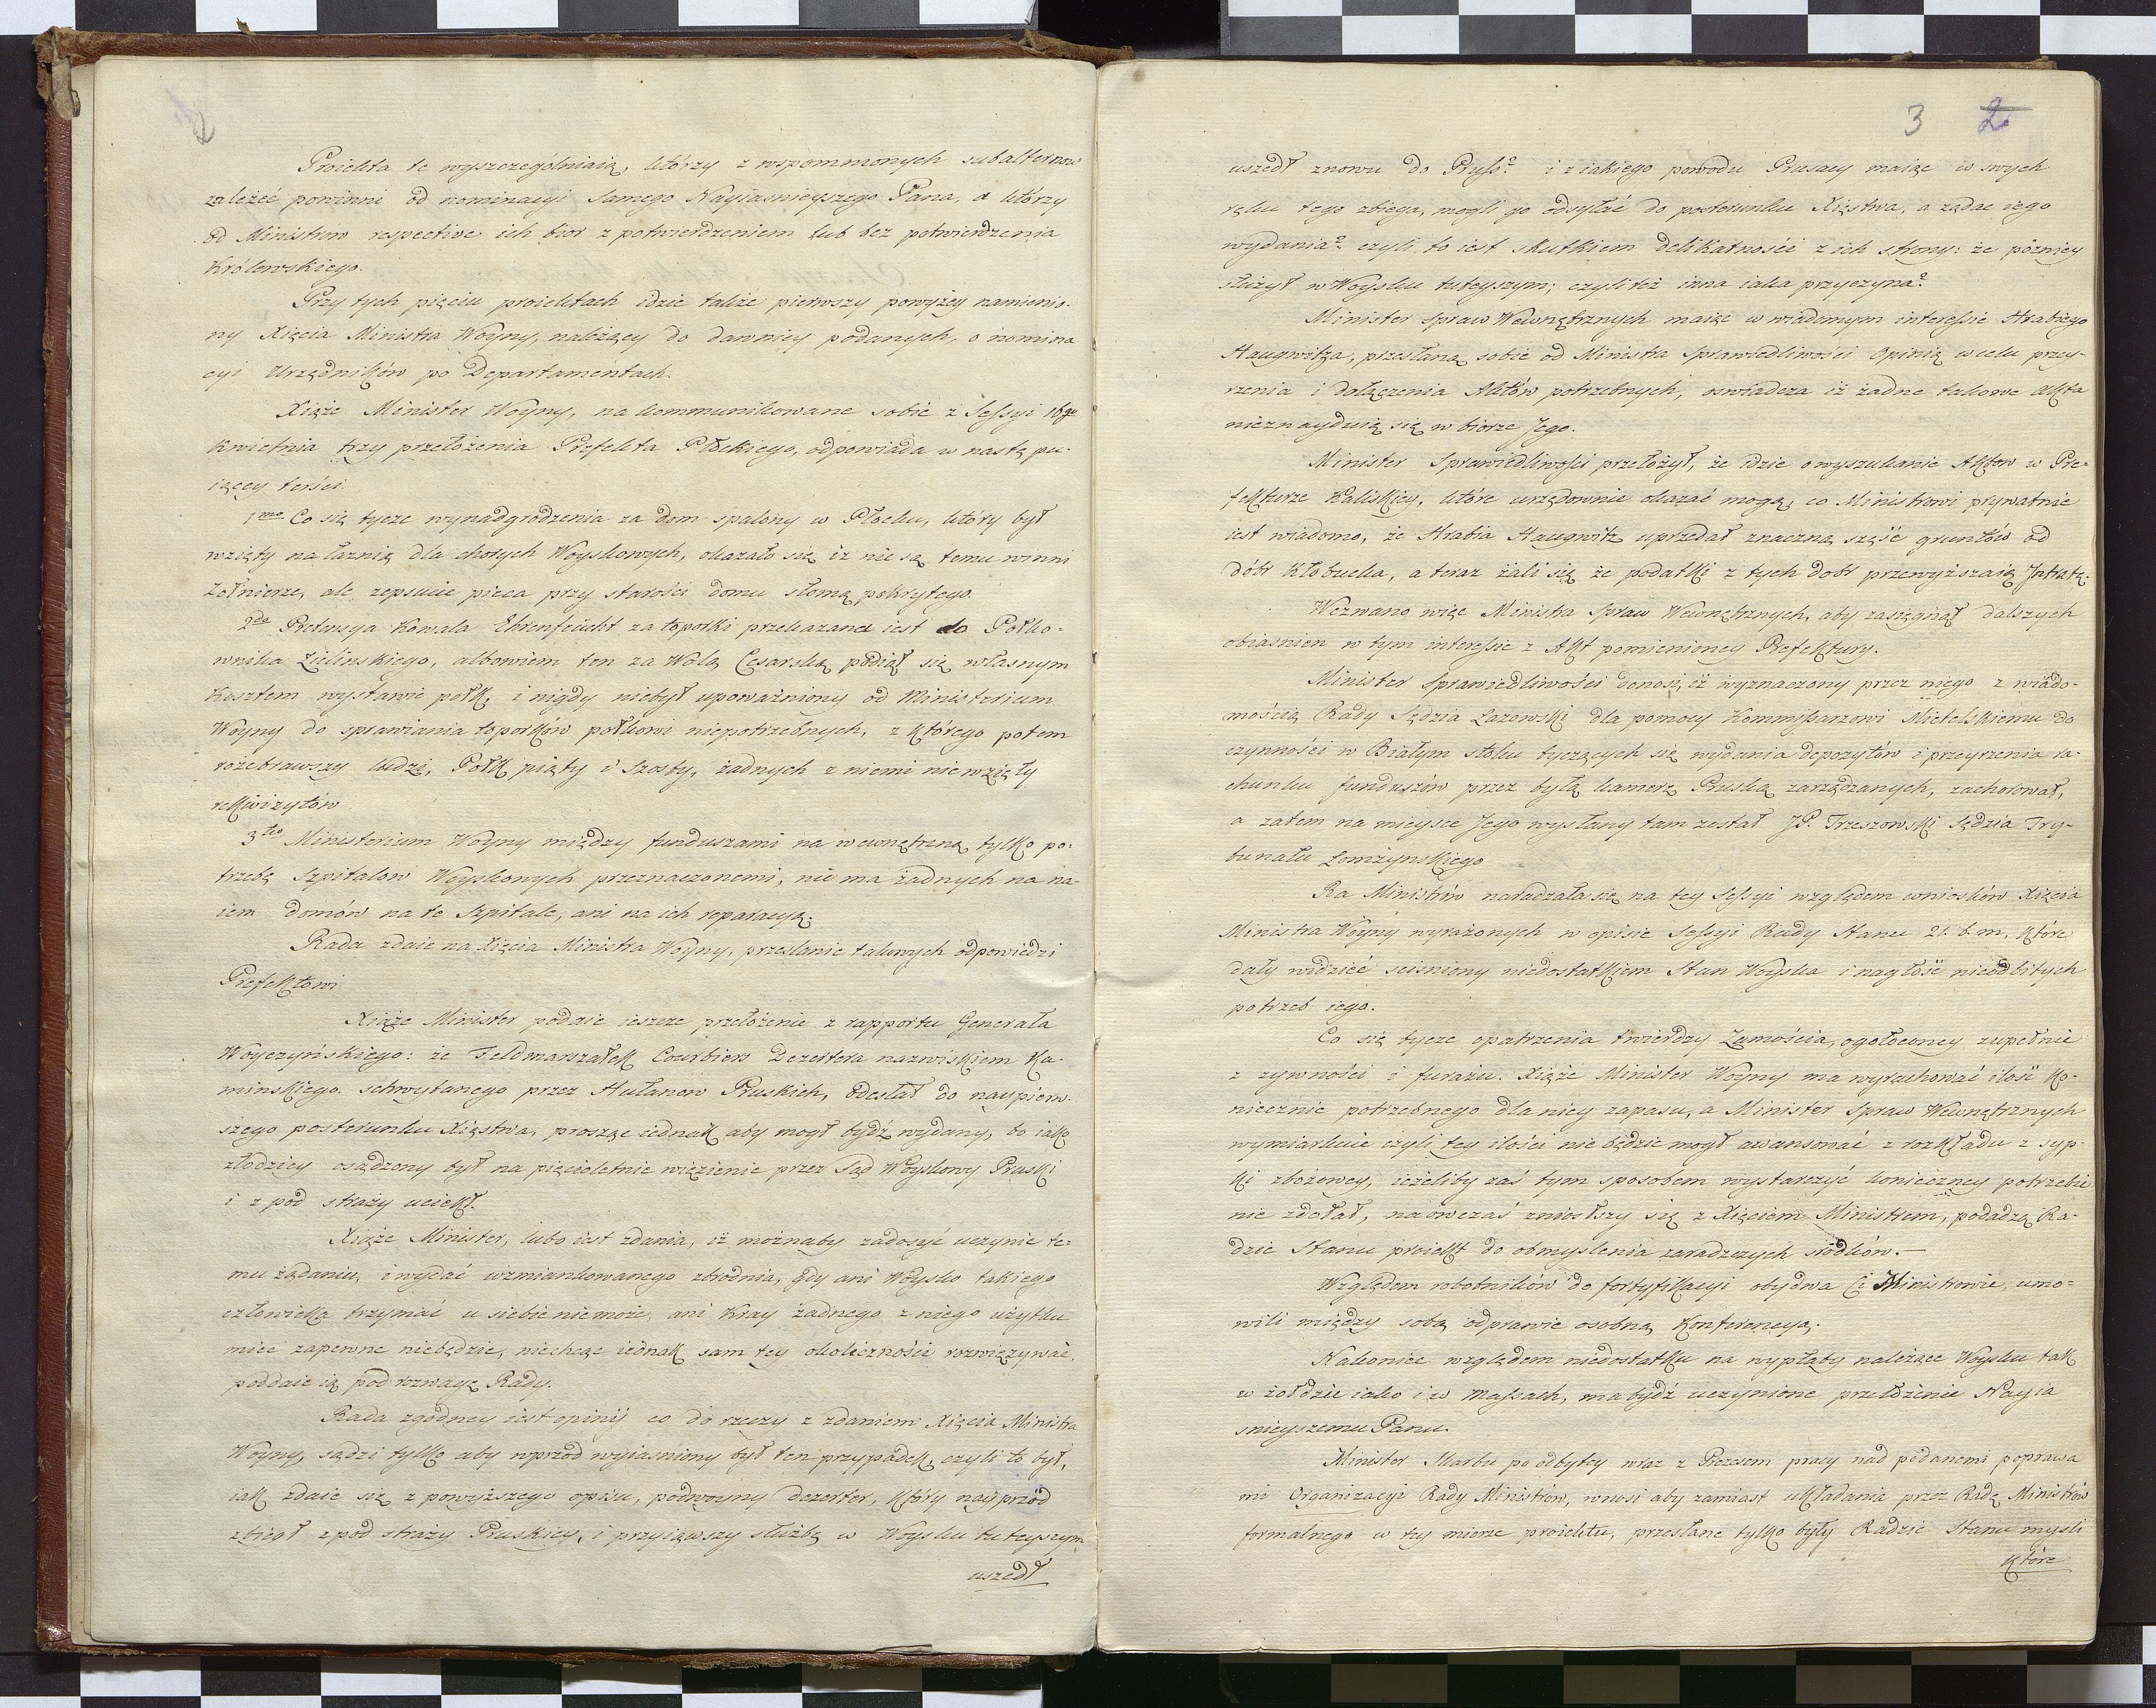 Proiekta te wyszczególniaią, którzy z wspommonych subalternow
zależeć powinni od nominacyi samego Nayiasnieyszego Pana, a którzy
od Ministrow respective ich biór z potwierdzeniem lub bez potwierdzenia
Królewskiego.
Przy tych pięciu proiektach idzie także pierwszy powyżey namienio-
ny Xięcia Ministra Woyny, należący do dawniey podanych, o nomina
cyi Urzędników po Departamentach.
Xiąże Minister Woyny, na kommunikowane sobie z Sessyi 16go
Kwietnia trzy przełożenia Prefekta Płockiego, odpowiada w nastę pu-
iącey treści.
1mo Co się tycze wynadgrodzenia za dom spalony w Płocku, który był
wzięty na łaznią dla chorych Woyskowych, okazało się iż nie są temu winni
Żołnierze, ale zepsucie pieca przy starości domu słomą pokrytego.
2do Pretensya Kowala Ehrenfeücht za toporki przekazana iest do Połko-
wnika Zielinskiego, albowiem ten za Wolą Cesarską podiął się własnym
Kosztem wystawić połk, i nigdy niebył upoważniony od Ministerium
Woyny do sprawiania toporków połkowi niepotrzebnych, z którego potem
rozebrawszy ludzi, Połk piąty i Szosty, żadnych z niemi nie wzięły
rekwizytów
3tio Ministerium Woyny między funduszami na wewnętrzną tylko po-
trzebę Szpitalow Woyskowych przeznaczonemi, nie ma żadnych na na-
iem domów na te Szpitale, ani na ich reparacyą.
Rada zdaie na Xięcia Ministra Woyny, przesłanie takowych odpowiedzi
Prefektowi
Xiąże Minister podaie ieszcze przełożenie z rapportu Generała
Woyczyńskiego: że Feldmarszałek Courbiere Dezertera nazwiskiem Ka-
minskiego schwytanego przez Hułanow Pruskich, odesłał do naypierw-
szego posterunku Xięstwa, prosząc iednak aby mogł bydź wydany, bo iako
złodziey osądzony był na pięcioletnie więzienie przez Sąd Woyskowy Pruski
i z pod straży uciekł.
Xiąże Minister, lubo iest zdania, iż możnaby zadosyć uczynić te-
mu żądaniu, i wydać wzmiankowanego zbrodnia, gdy ani Woysko takiego
człowieka trzymać u siebie niemoże, ani Kray żadnego z niego użytku
mieć zapewne niebędzie, niechcąc iednak sam tey okoliczności rozwięzywać,
poddaie ią pod rozwagę Rady.
Rada zgodney iest opinij co do rzeczy z zdaniem Xięcia Ministra
Woyny, sądzi tylko aby wprzod wyiasniony był ten przypadek, czyli to był,
iak zdaie się z powyższego opisu, podwoyny dezerter, który nayprzód
zbiegł z pod straży Pruskiey, i przyiąwszy służbę w Woysku tuteyszym
uszedł
3 2
uszedł znowu do Pruss? i z iakiego powodu Prusacy maiąc w swych
ręku tego zbiega, mogli go odsyłać do posterunku Xięstwa, a żądać iego
wydania? czyli to iest skutkiem delikatności z ich strony: że pózniey
służył w Woysku tuteyszym; czyli też inna iaka przyczyna?
Minister Spraw Wewnętrznych maiąc w wiadomym interessie Hrabiego
Haugwitza, przesłaną sobie od Ministra Sprawiedliwości Opinią w celu przey-
rzenia i dołączenia Aktów potrzebnych, oswiadcza iż żadne takowe akta
nieznayduią się w biorze Jego.
Minister Sprawiedliwości przełożył, że idzie o wyszukanie Aktow w Pre-
fekturze Kaliskiey, które urzędownie okazać mogą, co Ministrowi prywatnie
iest wiadomo, że Hrabia Haugwitz uprzedał znaczną część gruntów od
dóbr Kłobucka, a teraz żali się że podatki z tych dobr przewyższaią Intratę.
Wezwano więc Ministra Spraw Wewnętrznych, aby zasięgnął dalszych
obiasnien w tym interessie z Akt pomienioney Prefektury.
Minister Sprawiedliwości donosi, iż wyznaczony przez niego z wiado-
mością Rady Sędzia Łazowski dla pomocy Kommissarzowi Michelskiemu do
czynności w Białym stoku tyczących się wydania depozytów i przeyrzenia ra-
chunku funduszów przez byłą kamerę Pruską zarządzanych, zachorował,
a zatem na mieysce Jego wysłany tam został JP. Trzeszowski Sędzia Try-
bunału Łomżynskiego
Ra Ministrów naradzała się na tey Sessyi względem wniosków Xięcia
Ministra Woyny wyrażonych w opisie Sessyi Rady Stanu 21. b. m, które
dały widzieć scisniony niedostatkiem Stan Woyska i nagłość nieodbitych
potrzeb iego.
Co się tycze opatrzenia twierdzy Zamościa, ogołoconey zupełnie
z zywności i furażu. Xiąże Minister Woyny ma wyrachować ilość ko-
niecznie potrzebnego dla niey zapasu, a Minister Spraw Wewnętrznych
wymiarkuie czyli tey ilości nie będzie mogł awansować z rozkładu z syp-
ki zbożowey, ieżeliby zaś tym sposobem wystarczyć konieczney potrzebie
nie zdołał, naówczaś zniosłszy się z Xięciem Ministrem, podadzą Ra-
dzie Stanu proiekt do obmyslenia zaradczych srodków.—
Względem robotników do fortyfikacyi obydwa Ci Ministrowie, umo-
wili między sobą odprawić osobną Konferencyą.
Nakoniec względem niedostatku na wypłaty należące Woysku tak
w żołdzie iako i w Massach, ma bydź uczynione przełożenie Nayia
snieyszemu Panu.
Minister Skarbu po odbytey wraz z Prezesem pracy nad podanemi poprawa
mi Organizacyi Rady Ministrów, wnosi aby zamiast układania przez Radę Ministrów
formalnego w tey mierze proiektu, przesłane tylko były Radzie Stanu mysli
które